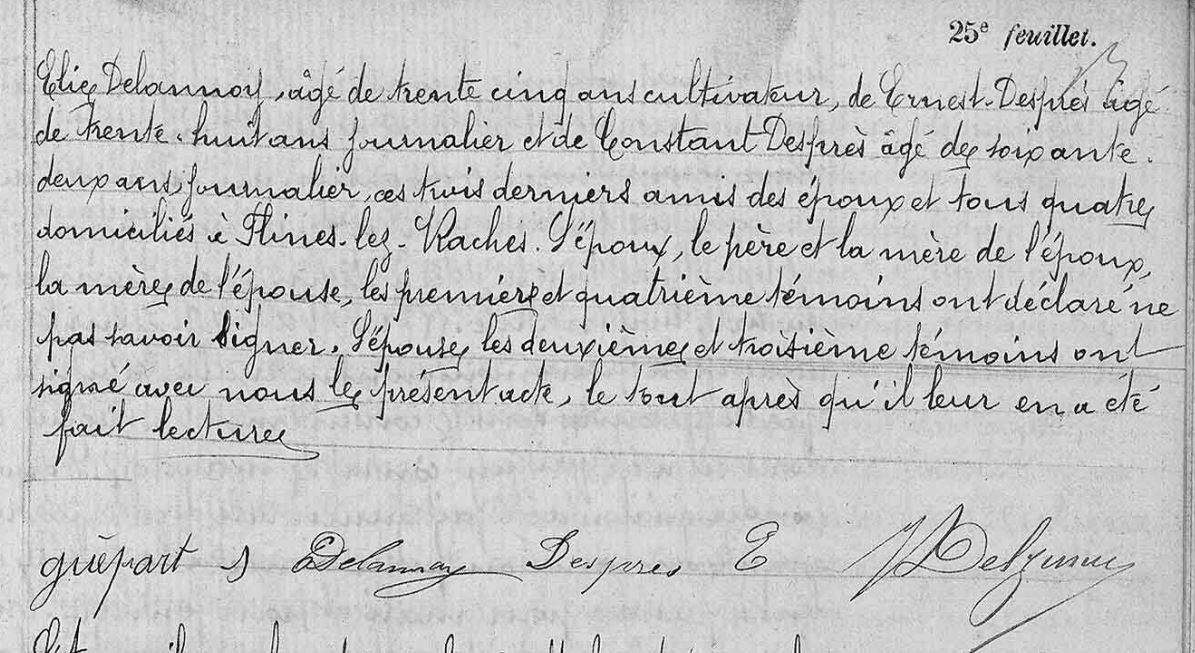 25e feuillet.
Elie Delannoy, âgé de trente cinq ans cultivateur, de Ernest Desprès âgé
de trente-huit ans journalier et de Constant Desprès âgé de soixante-
deux ans journalier, ces trois derniers amis des époux et tous quatre
domiciliés à Flines-lez-Raches. L'époux, le père et la mère de l'époux,
la mère de l'épouse, les premier et quatrième témoins ont déclaré ne
pas savoir signer. L'épouse, les deuxième et troisième témoins ont
signé avec nous le présent acte, le tout après qu'il leur en a été
fait lecture
guépart J EDelannoy Despres E